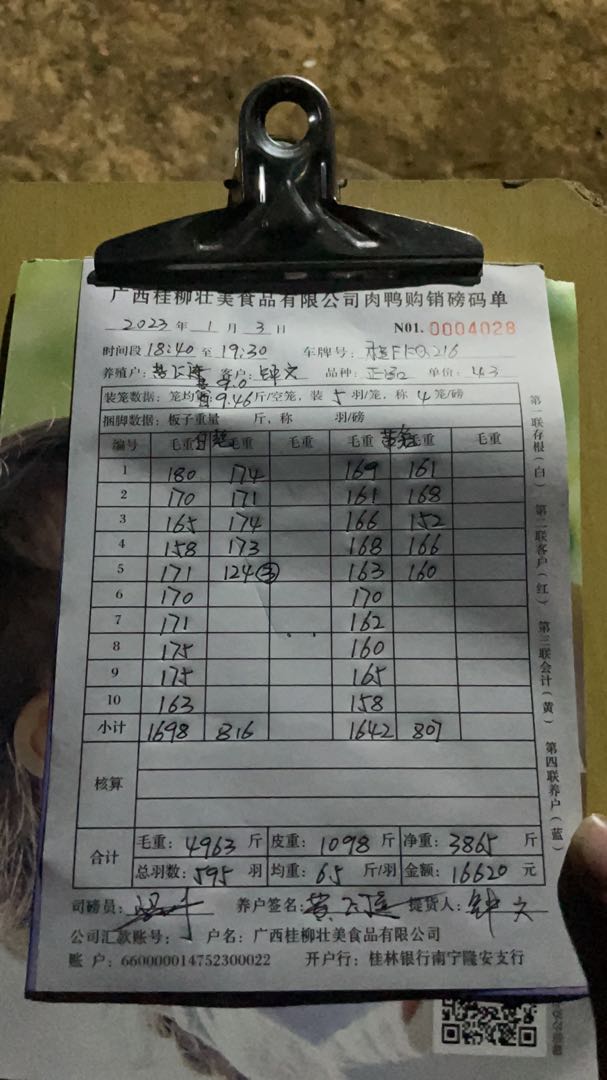 广西桂柳壮美食品有限公司肉鸭购销磅码单
2023 年 1 月 3 日 N01. 0004028
时间段 18:40 至 19:30 车牌号: 216
养殖户: 客户: 钟文 品种: 单价: 4.3
装笼数据: 笼均 9.46 斤/空笼, 装 5 羽/笼, 称 4 笼/磅
捆脚数据: 板子重量 斤, 称 羽/磅
编号 毛重 毛重 毛重 毛重 毛重 毛重
1 180 174 169 161
2 170 171 161 168
3 165 174 166 152
4 158 173 168 166
5 171 124③ 163 160
6 170 170
7 171 162
8 175 160
9 175 165
10 163 158
小计 1698 816 1642 807
核算
合计 毛重: 4963 斤 皮重: 1098 斤 净重: 3865 斤
总羽数: 595 羽 均重: 6.5 斤/羽 金额: 16620 元
司磅员: 养户签名: 黄飞 提货人: 钟文
公司汇款账号: 户名: 广西桂柳壮美食品有限公司
账户: 660000014752300022 开户行: 桂林银行南宁隆安支行
第一联存根(白) 第二联客户(红) 第三联会计(黄) 第四联养户(蓝)